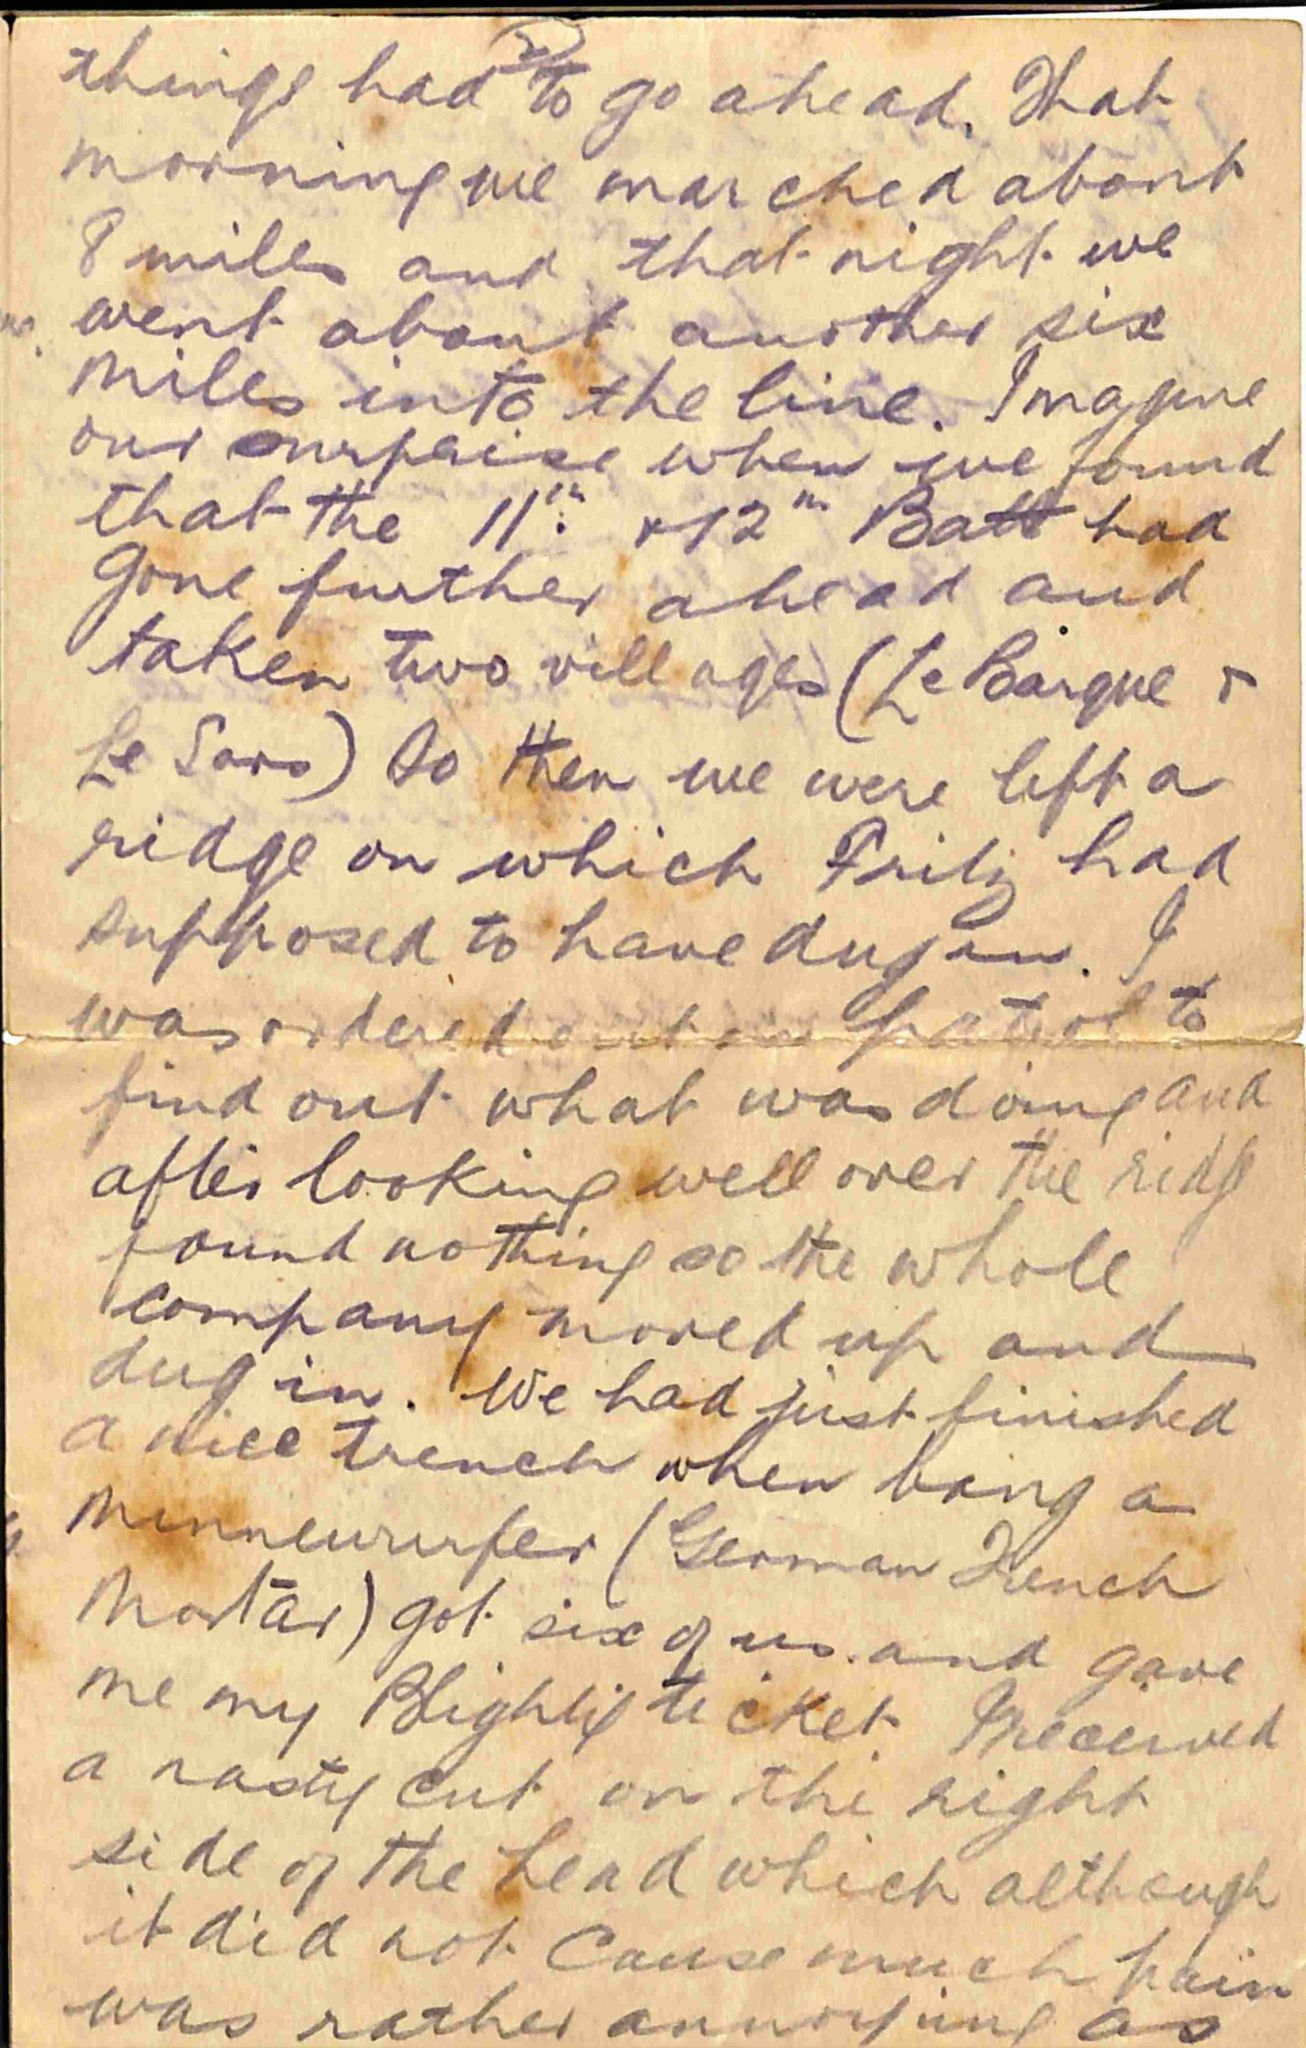 things had to go ahead. That
morning we marched about
8 miles and that night we
went about another six
miles into the line. Imagine
our surprise when we found
that the 11th & 12th Batt had
gone further ahead and
taken two villages (Le Barque &
Le Sars) So then we were left a
ridge on which Fritz had
supposed to have dug in. I
was ordered out on patrol to
find out what was doing and
after looking well over the ridge
found nothing so the whole
company moved up and
dug in. We had just finished
a nice trench when bang a
minnewurfer (German Trench
Mortar) got six of us and gave
me my Blighty ticket. I received
a nasty cut on the right
side of the head which although
it did not cause much pain
was rather annoying as